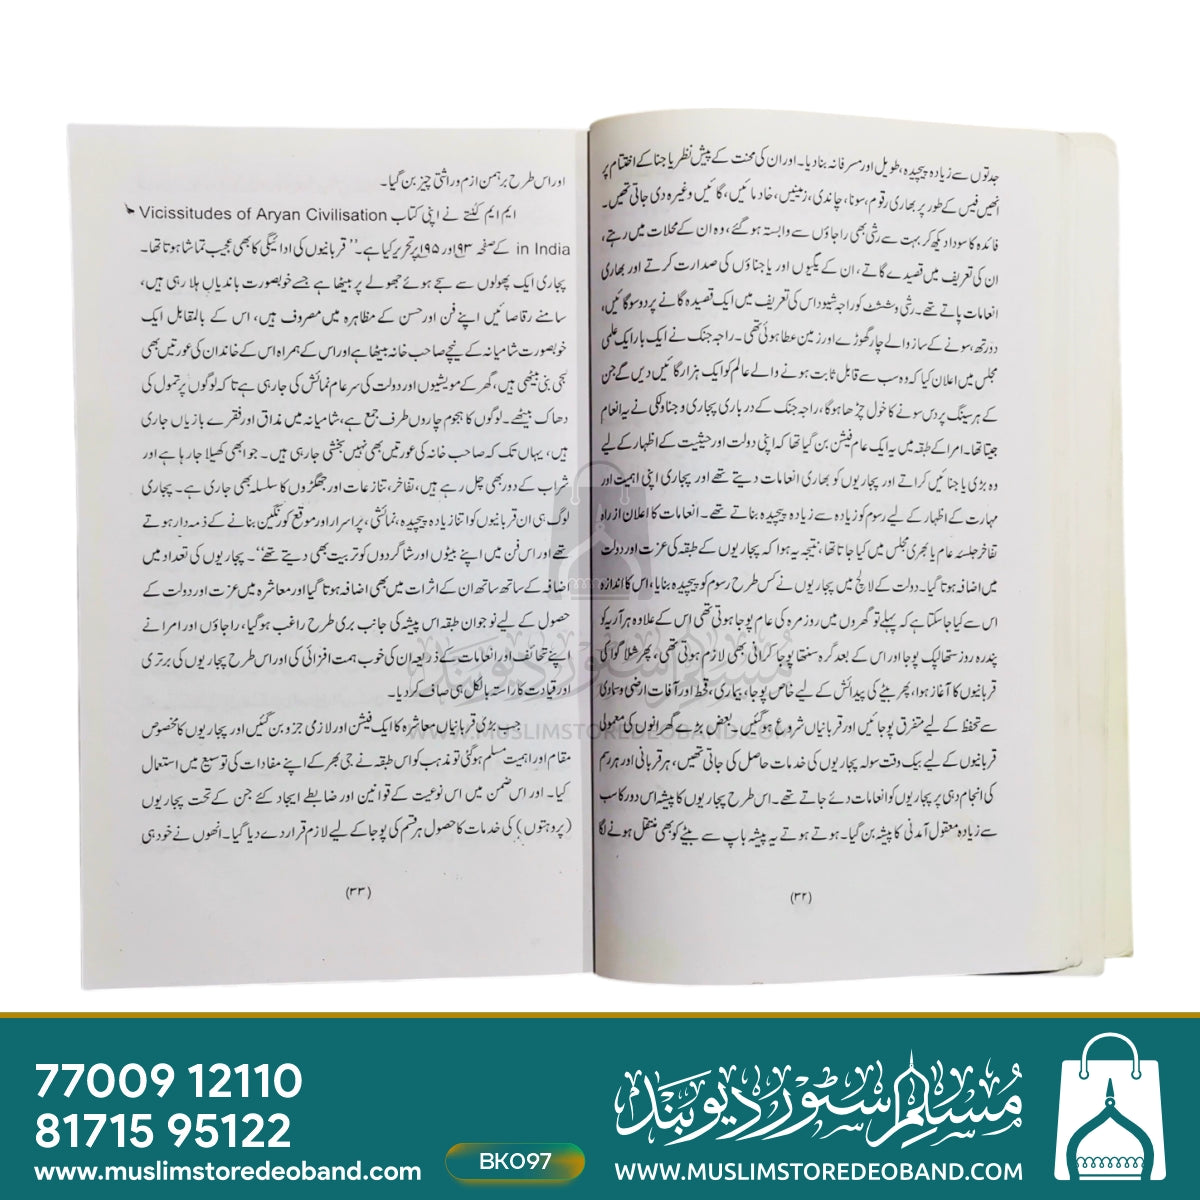 جدتوں سے زیادہ پیچیدہ، طویل اور مسرفانہ بنادیا۔ اور ان کی محنت کے پیش نظر یا جنا کے اختتام پر
انھیں فیس کے طور پر بھاری رقوم، سونا، چاندی، زمینیں، خادمائیں، گائیں وغیرہ دی جاتی تھیں۔
فائدہ کا سودا دیکھ کر بہت سے رشی بھی راجاؤں سے وابستہ ہوگئے، وہ ان کے محلات میں رہتے،
ان کی تعریف میں قصیدے گاتے، ان کے یگیوں اور یا جناؤں کی صدارت کرتے اور بھاری
انعامات پاتے تھے۔ رشی وششٹ کو راجہ شیوداس کی تعریف میں ایک قصیدہ گانے پر دو سو گائیں،
دو رتھ، سونے کے ساز والے چار گھوڑے اور زمین عطا ہوئی تھی۔ راجہ جنک نے ایک بار ایک علمی
مجلس میں اعلان کیا کہ وہ سب سے قابل ثابت ہونے والے عالم کو ایک ہزار گائیں دیں گے جن
کے ہر سینگ پر دس سونے کا خول چڑھا ہوگا، راجہ جنک کے درباری پجاری وجناولکی نے یہ انعام
جیتا تھا۔ امرا کے طبقہ میں یہ ایک عام فیشن بن گیا تھا کہ اپنی دولت اور حیثیت کے اظہار کے لیے
وہ بڑی یا جنائیں کراتے اور پجاریوں کو بھاری انعامات دیتے تھے اور پجاری اپنی اہمیت اور
مہارت کے اظہار کے لیے رسوم کو زیادہ سے زیادہ پیچیدہ بناتے تھے۔ انعامات کا اعلان از راہ
تفاخر جلسہ عام یا بھری مجلس میں کیا جاتا تھا، نتیجہ یہ ہوا کہ پجاریوں کے طبقہ کی عزت اور دولت
میں اضافہ ہوتا گیا۔ دولت کے لالچ میں پجاریوں نے کس طرح رسوم کو پیچیدہ بنایا، اس کا اندازہ
اس سے کیا جاسکتا ہے کہ پہلے تو گھروں میں روزمرہ کی عام پوجا ہوتی تھی اس کے علاوہ ہر آریہ کو
پندرہ روز ستھالیک پوجا اور اس کے بعد گرہ سنتھا پوجا کرانی بھی لازم ہوتی تھی، پھر شلاگوا کی
قربانیوں کا آغاز ہوا، پھر بیٹے کی پیدائش کے لیے خاص پوجا، بیماری، قحط اور آفات ارضی و سماوی
سے تحفظ کے لیے متفرق پوجائیں اور قربانیاں شروع ہوگئیں۔ بعض بڑے گھرانوں کی معمولی
قربانیوں کے لیے بیک وقت سولہ پجاریوں کی خدمات حاصل کی جاتی تھیں، ہر قربانی اور ہر رسم
کی انجام دہی پر پجاریوں کو انعامات دئے جاتے تھے۔ اس طرح پجاریوں کا پیشہ اس دور کا سب
سے زیادہ معقول آمدنی کا پیشہ بن گیا۔ ہوتے ہوتے یہ پیشہ باپ سے بیٹے کو بھی منتقل ہونے لگا
(۳۲)
اور اس طرح برہمن ازم وراثتی چیز بن گیا۔
ایم ایم کنٹے نے اپنی کتاب Vicissitudes of Aryan Civilisation
in India کے صفحہ ۹۳ اور ۱۹۵ پر تحریر کیا ہے۔ ”قربانیوں کی ادائیگی کا بھی عجیب تماشا ہوتا تھا۔
پجاری ایک پھولوں سے سجے ہوئے جھولے پر بیٹھا ہے جسے خوبصورت باندیاں ہلا رہی ہیں،
سامنے رقاصائیں اپنے فن اور حسن کے مظاہرہ میں مصروف ہیں، اس کے بالمقابل ایک
خوبصورت شامیانہ کے نیچے صاحب خانہ بیٹھا ہے اور اس کے ہمراہ اس کے خاندان کی عورتیں بھی
سجی بنی بیٹھی ہیں، گھر کے مویشیوں اور دولت کی سرعام نمائش کی جارہی ہے تاکہ لوگوں پر تمول کی
دھاک بیٹھے۔ لوگوں کا ہجوم چاروں طرف جمع ہے، شامیانہ میں مذاق اور فقرے بازیاں جاری
ہیں، یہاں تک کہ صاحب خانہ کی عورتیں بھی نہیں بخشی جارہی ہیں۔ جوا بھی کھیلا جارہا ہے اور
شراب کے دور بھی چل رہے ہیں، تفاخر، تنازعات اور جھگڑوں کا سلسلہ بھی جاری ہے۔ پجاری
لوگ ہی ان قربانیوں کو اتنا زیادہ پیچیدہ، نمائشی، پراسرار اور موقع کو رنگین بنانے کے ذمہ دار ہوتے
تھے اور اس فن میں اپنے بیٹوں اور شاگردوں کو تربیت بھی دیتے تھے“۔ پجاریوں کی تعداد میں
اضافہ کے ساتھ ساتھ ان کے اثرات میں بھی اضافہ ہوتا گیا اور معاشرہ میں عزت اور دولت کے
حصول کے لیے نوجوان طبقہ اس پیشہ کی جانب بری طرح راغب ہوگیا، راجاؤں اور امرا نے
اپنے تحائف اور انعامات کے ذریعہ ان کی خوب ہمت افزائی کی اور اس طرح پجاریوں کی برتری
اور قیادت کا راستہ بالکل ہی صاف کردیا۔
جب بڑی قربانیاں معاشرہ کا ایک فیشن اور لازمی جزو بن گئیں اور پجاریوں کا مخصوص
مقام اور اہمیت مسلم ہوگئی تو مذہب کو اس طبقہ نے جی بھر کے اپنے مفادات کی توسیع میں استعمال
کیا۔ اور اس ضمن میں اس نوعیت کے قوانین اور ضابطے ایجاد کئے جن کے تحت پجاریوں
(پروہتوں) کی خدمات کا حصول ہر قسم کی پوجا کے لیے لازم قرار دے دیا گیا۔ انھوں نے خود ہی
(۳۳)
مسلم سٹور دیوبند
WWW.MUSLIMSTOREDEOBAND.COM
77009 12110
81715 95122
www.muslimstoredeoband.com
BK097
مسلم سٹور دیوبند
WWW.MUSLIMSTOREDEOBAND.COM